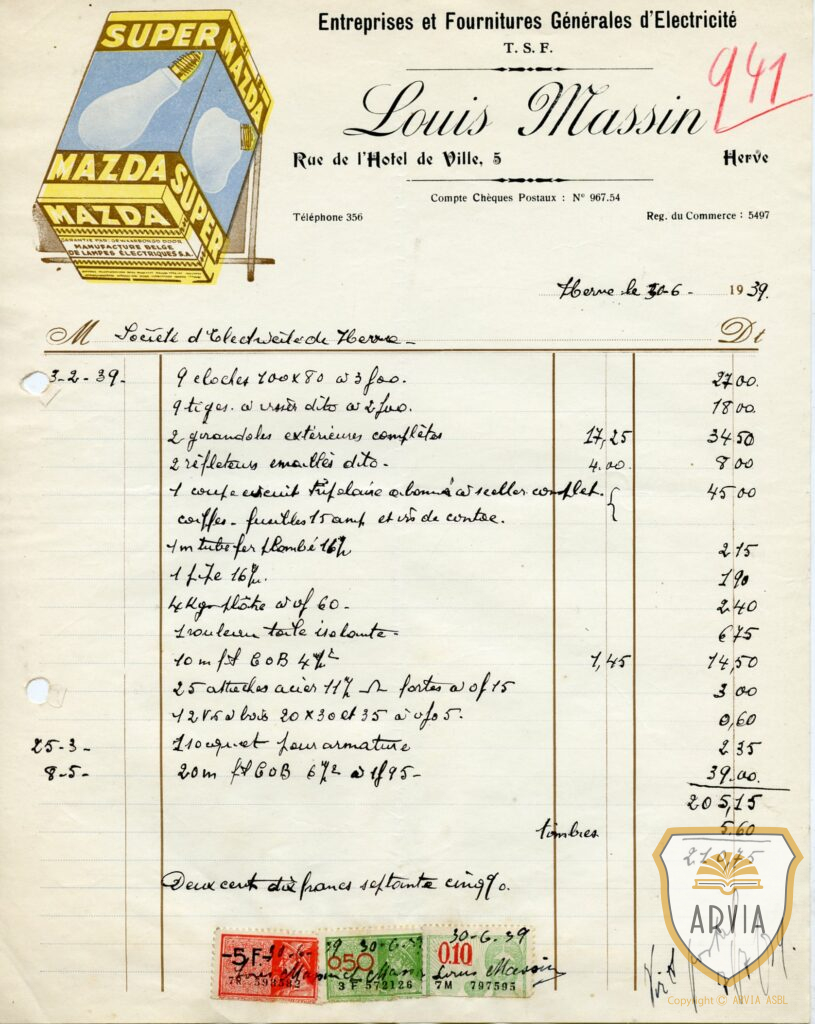 SUPER
MAZDA
MAZDA
SUPER
MAZDA
GARANTIE PAR: GEWAARBORGD DOOR
MANUFACTURE BELGE
DE LAMPES ÉLECTRIQUES S.A.
Entreprises et Fournitures Générales d'Electricité
T. S. F.
941
Louis Massin
Rue de l'Hotel de Ville, 5 Herve
Compte Chèques Postaux : N° 967.54
Téléphone 356 Reg. du Commerce : 5497
Herve le 30-6- 1939.
M Société d'Electricité de Herve - Dt
3-2-39. 9 cloches 100x80 à 3f00. 27 00.
9 tiges à visser dito à 2f00. 18 00.
2 girandoles extérieures complètes 17,25 34 50
2 réfleteurs emaillés dito. 4.00. 8 00
1 coupe circuit tripolaire abonné à sceller complet. 45 00
coiffes - fusilles 15 amp et vis de contac.
1 m tube fer plombé 16 2 15
1 16 1 90
4 Kgr plâtre à 0f 60 - 2 40
1 rouleau toile isolante - 6 75
10 m fil COB 4 1,45 14,50
25 attaches acier 11 fortes à 0f 15 3 00
12 Vis à bois 20 x 30 et 35 à 0f05. 0,60
25-3- 1 socquet pour armature 2 35
8-5- 20 m fil COB 6 à 1f95 - 39.00.
205,15
timbres 5.60
210,75
Deux cent dix francs septante cinq
-5F- 0.50 0.10
30-6-39 30-6-39
Louis Massin Louis Massin
3F 572126 7M 797595
ARVIA
Copyright © ARVIA ASBL